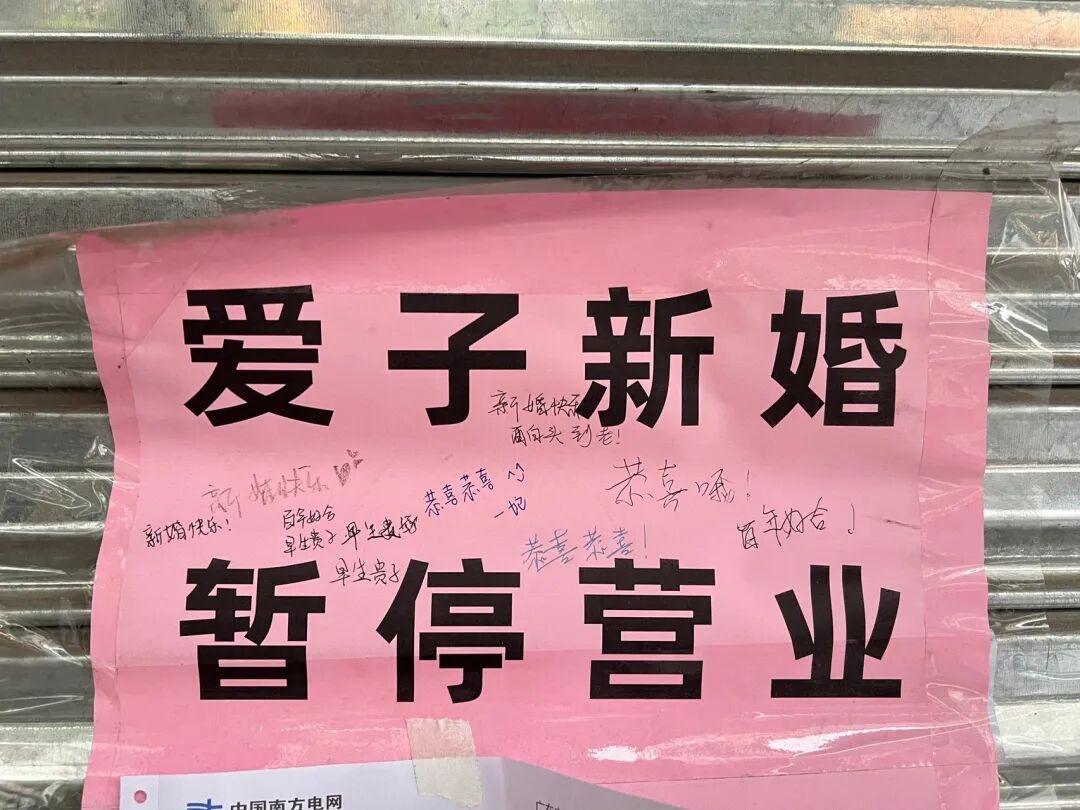 爱子新婚
新婚快乐
白头到老!
新婚快乐
恭喜恭喜
恭喜
新婚快乐!
百年好合
早生贵子
早生贵子
恭喜恭喜!
百年好合
暂停营业
中国南方电网